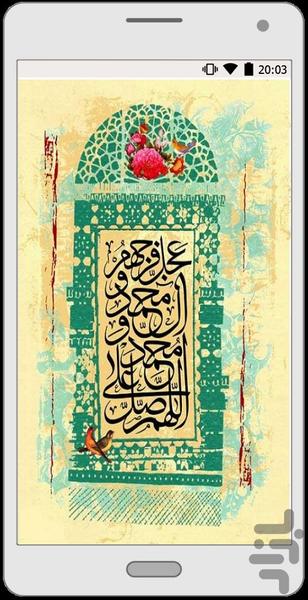 20:03
اللهم صل علی
محمد و
آل محمد و
عجل فرجهم
بازار